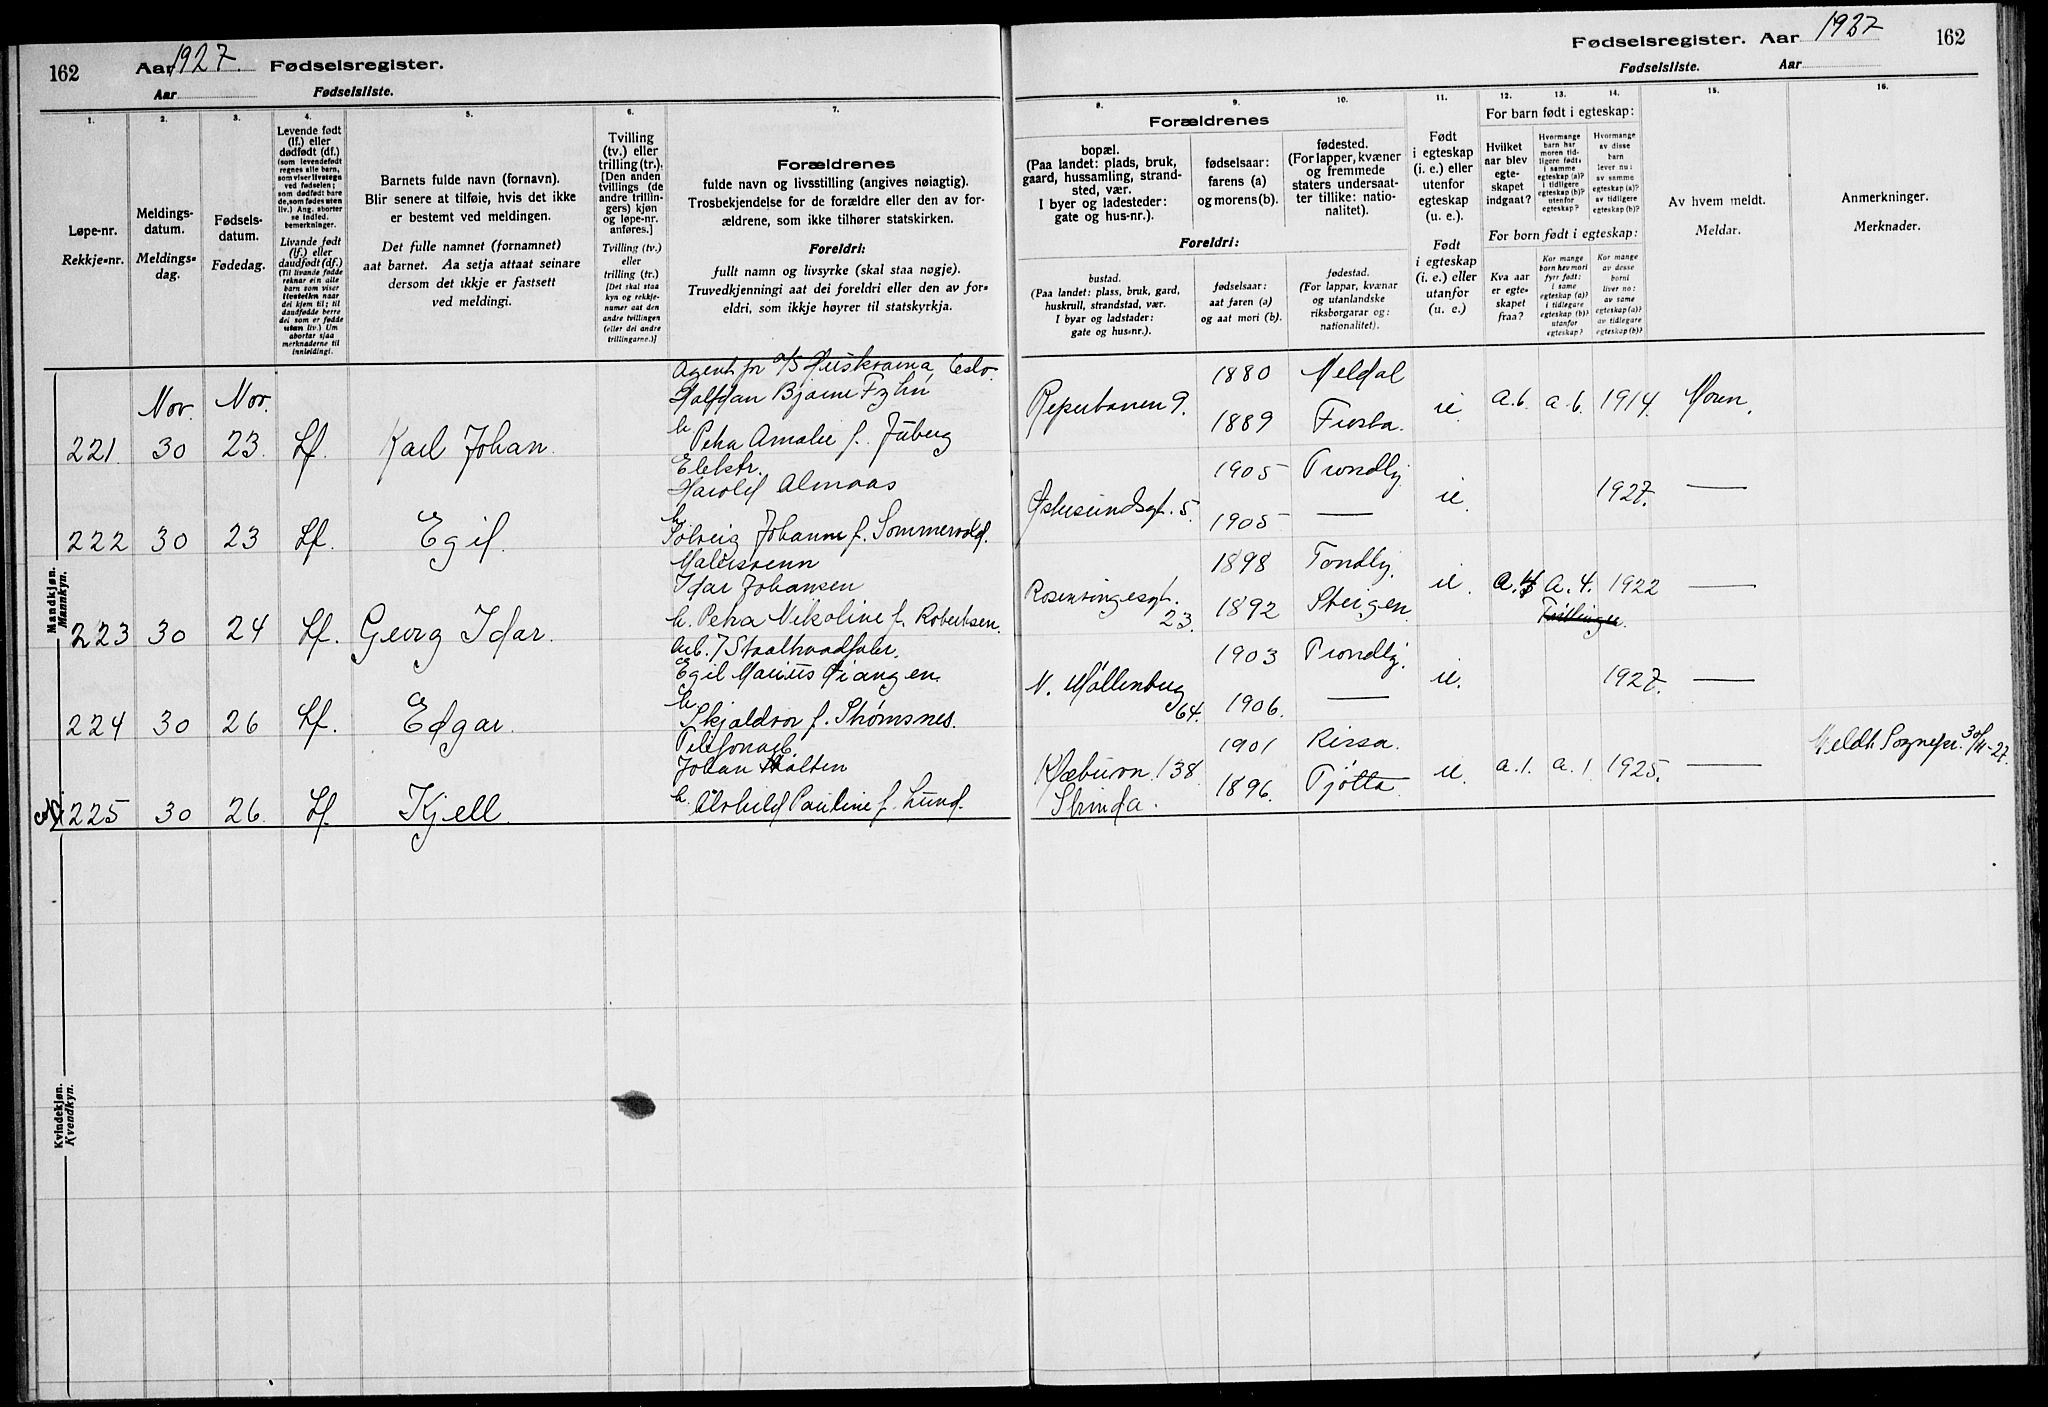 162 Aar 1927. Fødselsregister.
Aar Fødselsliste.
1. 2. 3. 4. 5. 6. 7.
Løpe-nr.
Rekkje-nr.
Meldings-
datum.
Meldings-
dag.
Fødsels-
datum.
Fødedag.
Levende født
(lf.) eller
dødfødt (df.)
(som levendefødt
regnes alle barn,
som viser livstegn
ved fødselen;
som dødfødt bare
de, som fødes uten
liv.) Ang. aborter
se indled.
bemerkninger.
Livande født
(lf.) eller
daudfødt (df.)
(Til livande fødde
reknar ein alle
born som viser
livsteikn naar
dei kjem til; til
daudfødde berre
dei som er fødde
utan liv.) Um
abortar sjaa
merknaderne til
innleidingi.
Barnets fulde navn (fornavn).
Blir senere at tilføie, hvis det ikke
er bestemt ved meldingen.
Det fulle namnet (fornamnet)
aat barnet. Aa setja attaat seinare
dersom det ikkje er fastsett
ved meldingi.
Tvilling
(tv.) eller
trilling (tr.).
[Den anden
tvillings (de
andre trillin-
gers) kjøn
og løpe-nr.
anføres.]
Tvilling (tv.)
eller
trilling (tr.)
[Det skal staa
kyn og rekkje-
numer aat den
andre tvillingen
(eller dei andre
trillingarne.)]
Forældrenes
fulde navn og livsstilling (angives nøiagtig).
Trosbekjendelse for de forældre eller den av for-
ældrene, som ikke tilhører statskirken.
Foreldri:
fullt namn og livsyrke (skal staa nøgje).
Truvedkjenningi aat dei foreldri eller den av for-
eldri, som ikkje høyrer til statskyrkja.
Mandkjøn.
Mannkyn.
Nov. Nov.
Agent for A/S Huskvarna, Oslo.
Halfdan Bjarne Fzhn
221. 30 23. Lf. Karl Johan. h. Petra Amalie f. Juberg
Elektr.
Harold Almaas
222 30 23 Lf. Egil. h. Solveig Johanne f. Sommervold.
Malersvenn
Idar Johansen
223 30 24 Lf. Georg Idar. h. Petra Nikoline f. Robertsen.
Arb. / Staaltraadfabr.
Egil Marius Giangen.
224 30 26 Lf. Edgar. h. Skjaldvor f. Strømsnes.
Telefonarb.
Johan Malten
225 30 26. Lf. Kjell. h. Alvhild Pauline f. Lund.
Kvindekjøn.
Kvendkyn.
Fødselsregister. Aar 1927 162
Fødselsliste. Aar
8. 9. 10. 11. 12. 13. 14. 15. 16.
Forældrenes
bopæl.
(Paa landet: plads, bruk,
gaard, hussamling, strand-
sted, vær.
I byer og ladesteder:
gate og hus-nr.).
fødselsaar:
farens (a)
og morens (b).
fødested.
(For lapper, kvæner
og fremmede
staters undersaat-
ter tillike: natio-
nalitet).
Foreldri:
bustad.
(Paa landet: plass, bruk, gard,
huskrull, strandstad, vær.
I byar og ladstader:
gate og hus-nr.).
fødselsaar:
aat faren (a)
og aat mori (b).
fødestad.
(For lappar, kvænar
og utanlandske
riksborgarar og:
nationalitet).
Født
i egteskap
(i. e.) eller
utenfor
egteskap
(u. e.).
Født
i egteskap
(i. e.) eller
utanfor
(u. e.)
For barn født i egteskap:
Hvilket
aar blev
egte-
skapet
indgaat?
Hvormange
barn har
moren tid-
ligere født:
i samme
egteskap (a)?
i tidligere
egteskap (b)?
utenfor
egteskap?
Hvormange
av disse
barn
lever nu:
av samme
egteskap (a)?
av tidligere
egteskap (b)?
For born født i egteskap:
Kva aar
er egte-
skapet
fraa?
Kor mange
born hev mori
fyrr født:
i same
egteskap (a)?
i tidlegare
egteskap (b)?
utanfor
egteskap?
Kor mange
av desse
borni
liver no:
av same
egteskap (a)?
av tidlegare
egteskap (b)?
Av hvem meldt.
Meldar.
Anmerkninger.
Merknader.
1880 Meldal
Reperbanen 9. 1889 Frosta. ie. a.6. a.6. 1914. Moren.
1905 Trondhj
Østersundsgt. 5. 1905 — ie. 1927. —
1898 Tondhj.
Rosenvingesgt. 23. 1892 Steigen. ie. a.4 a.4. 1922 —
1903 Trondhj.
N. Møllenberg 64. 1906. — ie. 1927. —
1901 Rissa.
Klæbuvn. 138 1896. Tjøtta ie. a.1. a.1 1925. — Meldt Sognepr. 30/11-27.
Strinda.